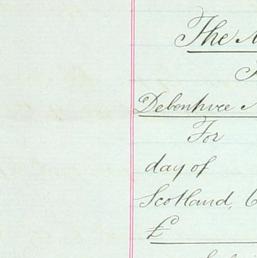 The
Debenture
For
day of
Scotland,
£